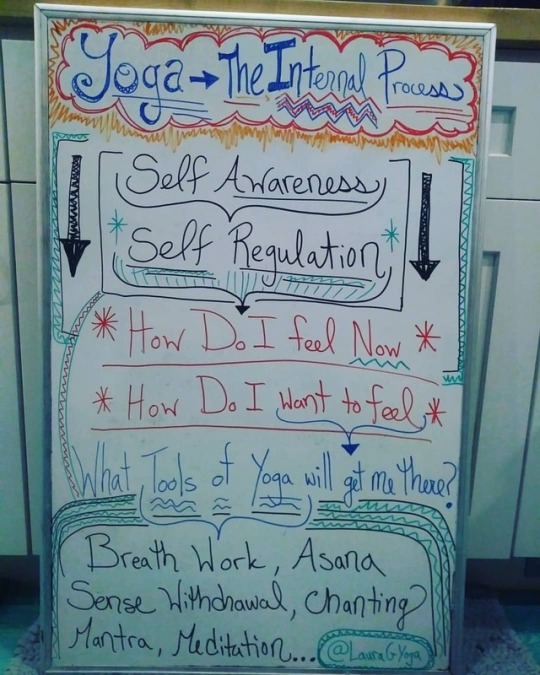 Yoga → The Internal Process
Self Awareness
* Self Regulation *
* How Do I feel Now *
* How Do I want to feel *
What Tools of Yoga will get me there?
Breath Work, Asana
Sense Withdrawal, Chanting
Mantra, Meditation...
@LauraGYoga